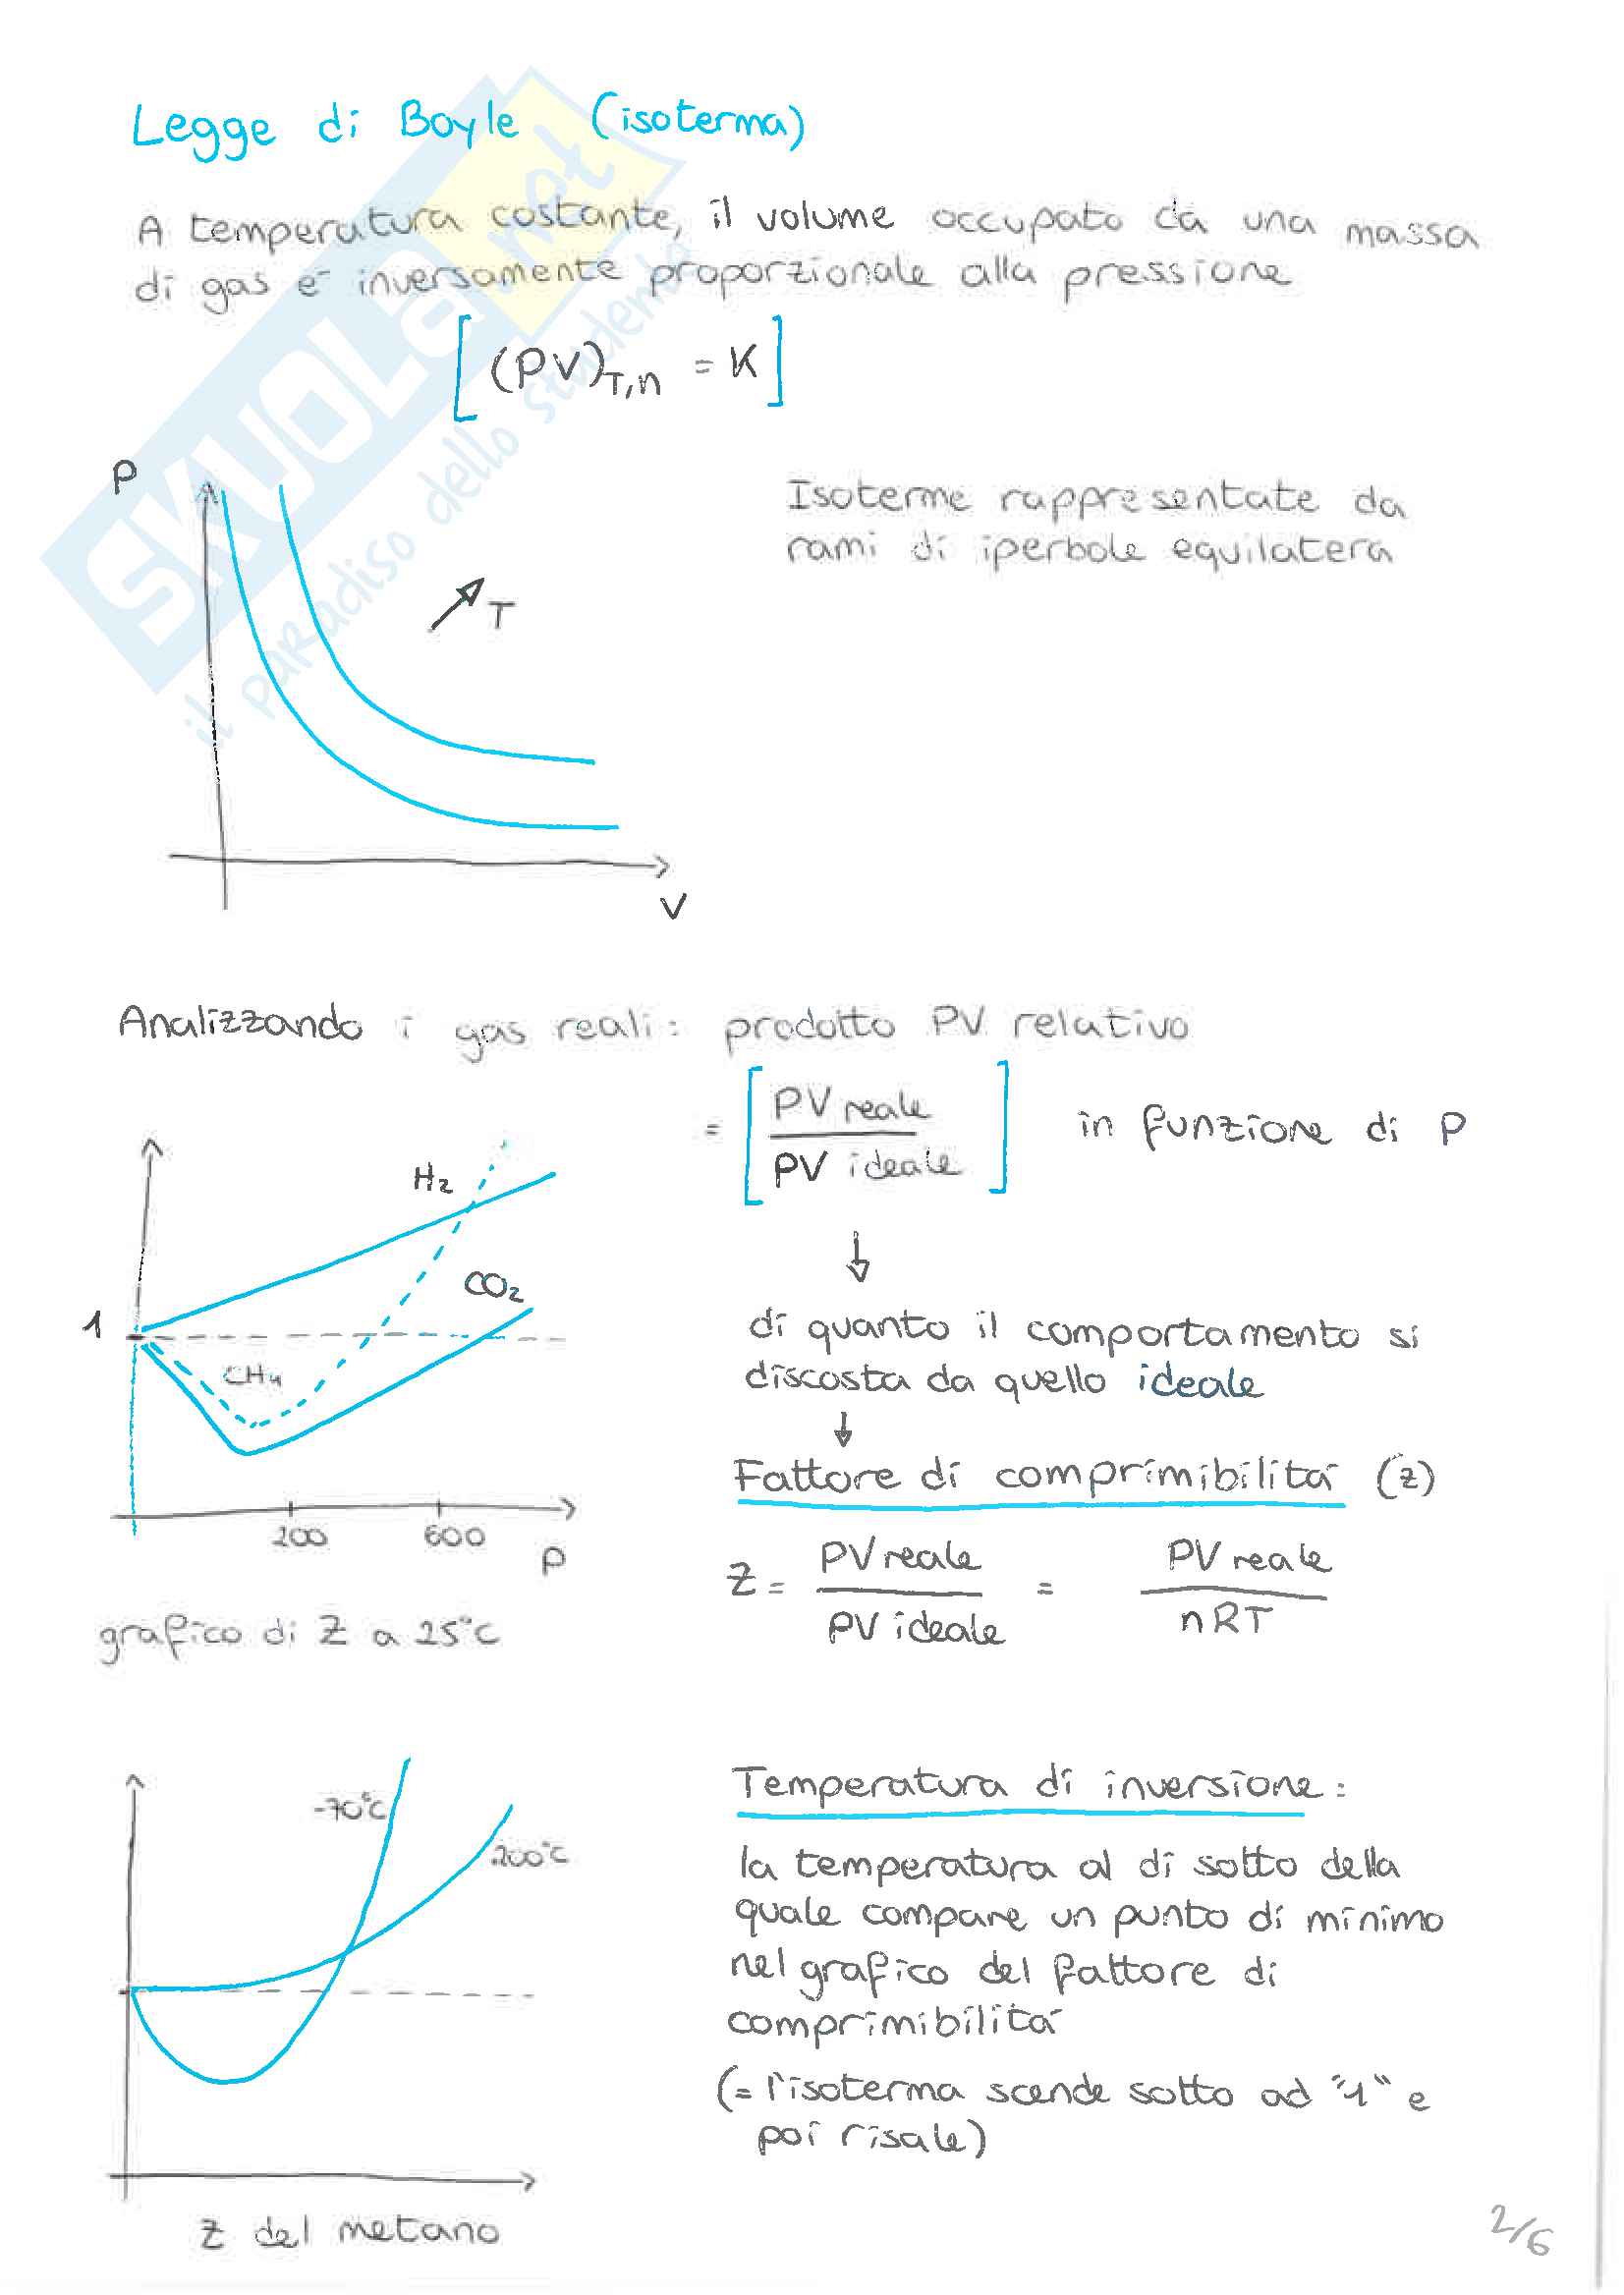 Legge di Boyle (isoterma)
A temperatura costante, il volume occupato da una massa
di gas e' inversamente proporzionale alla pressione
[(PV)T,n = K]
P
Isoterme rappresentate da
rami di iperbole equilatera
T
V
SKUOLA.net
il paradiso dello studente
Analizzando i gas reali: prodotto PV relativo
= [PV reale / PV ideale] in funzione di P
H2
CO2
1
CH4
200 600
P
grafico di Z a 25°C
↓
di quanto il comportamento si
discosta da quello ideale
↓
Fattore di comprimibilitá (z)
Z = PV reale / PV ideale = PV reale / nRT
-70°C
200°C
Z del metano
Temperatura di inversione:
la temperatura al di sotto della
quale compare un punto di minimo
nel grafico del fattore di
comprimibilitá
(= l'isoterma scende sotto ad "1" e
poi risale)
2/6